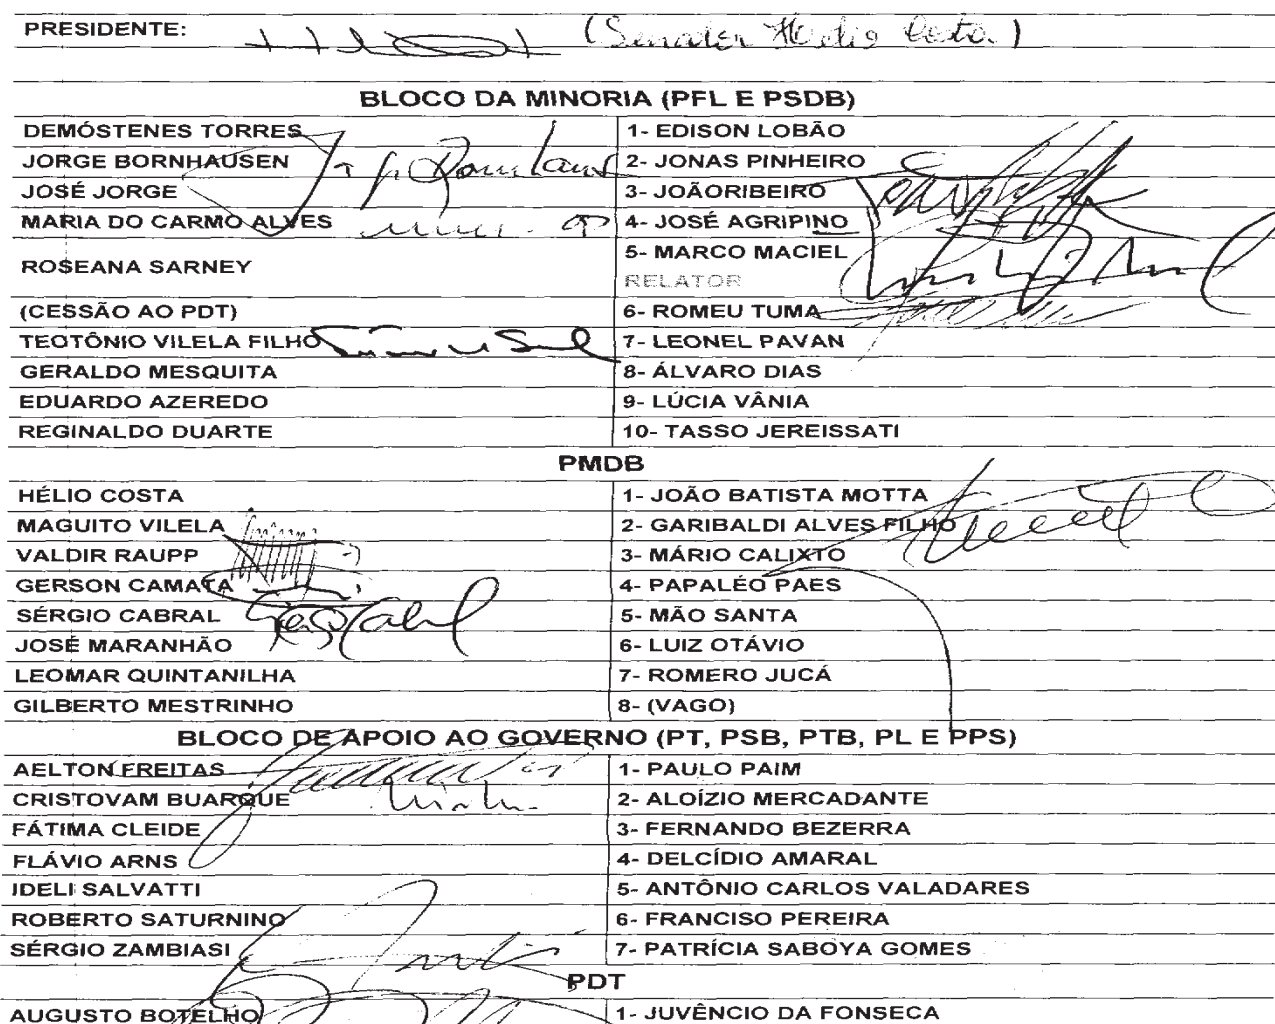 PRESIDENTE: (Senador Helio Costa)
BLOCO DA MINORIA (PFL E PSDB)
DEMÓSTENES TORRES 1- EDISON LOBÃO
JORGE BORNHAUSEN 2- JONAS PINHEIRO
JOSÉ JORGE 3- JOÃORIBEIRO
MARIA DO CARMO ALVES 4- JOSÉ AGRIPINO
ROSEANA SARNEY 5- MARCO MACIEL
RELATOR
(CESSÃO AO PDT) 6- ROMEU TUMA
TEOTÔNIO VILELA FILHO 7- LEONEL PAVAN
GERALDO MESQUITA 8- ÁLVARO DIAS
EDUARDO AZEREDO 9- LÚCIA VÂNIA
REGINALDO DUARTE 10- TASSO JEREISSATI
PMDB
HÉLIO COSTA 1- JOÃO BATISTA MOTTA
MAGUITO VILELA 2- GARIBALDI ALVES FILHO
VALDIR RAUPP 3- MÁRIO CALIXTO
GERSON CAMATA 4- PAPALÉO PAES
SÉRGIO CABRAL 5- MÃO SANTA
JOSÉ MARANHÃO 6- LUIZ OTÁVIO
LEOMAR QUINTANILHA 7- ROMERO JUCÁ
GILBERTO MESTRINHO 8- (VAGO)
BLOCO DE APOIO AO GOVERNO (PT, PSB, PTB, PL E PPS)
AELTON FREITAS 1- PAULO PAIM
CRISTOVAM BUARQUE 2- ALOÍZIO MERCADANTE
FÁTIMA CLEIDE 3- FERNANDO BEZERRA
FLÁVIO ARNS 4- DELCÍDIO AMARAL
IDELI SALVATTI 5- ANTÔNIO CARLOS VALADARES
ROBERTO SATURNINO 6- FRANCISO PEREIRA
SÉRGIO ZAMBIASI 7- PATRÍCIA SABOYA GOMES
PDT
AUGUSTO BOTELHO 1- JUVÊNCIO DA FONSECA